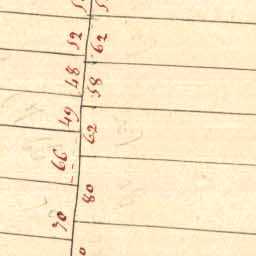 52
62
48
58
49
62
66
80
70